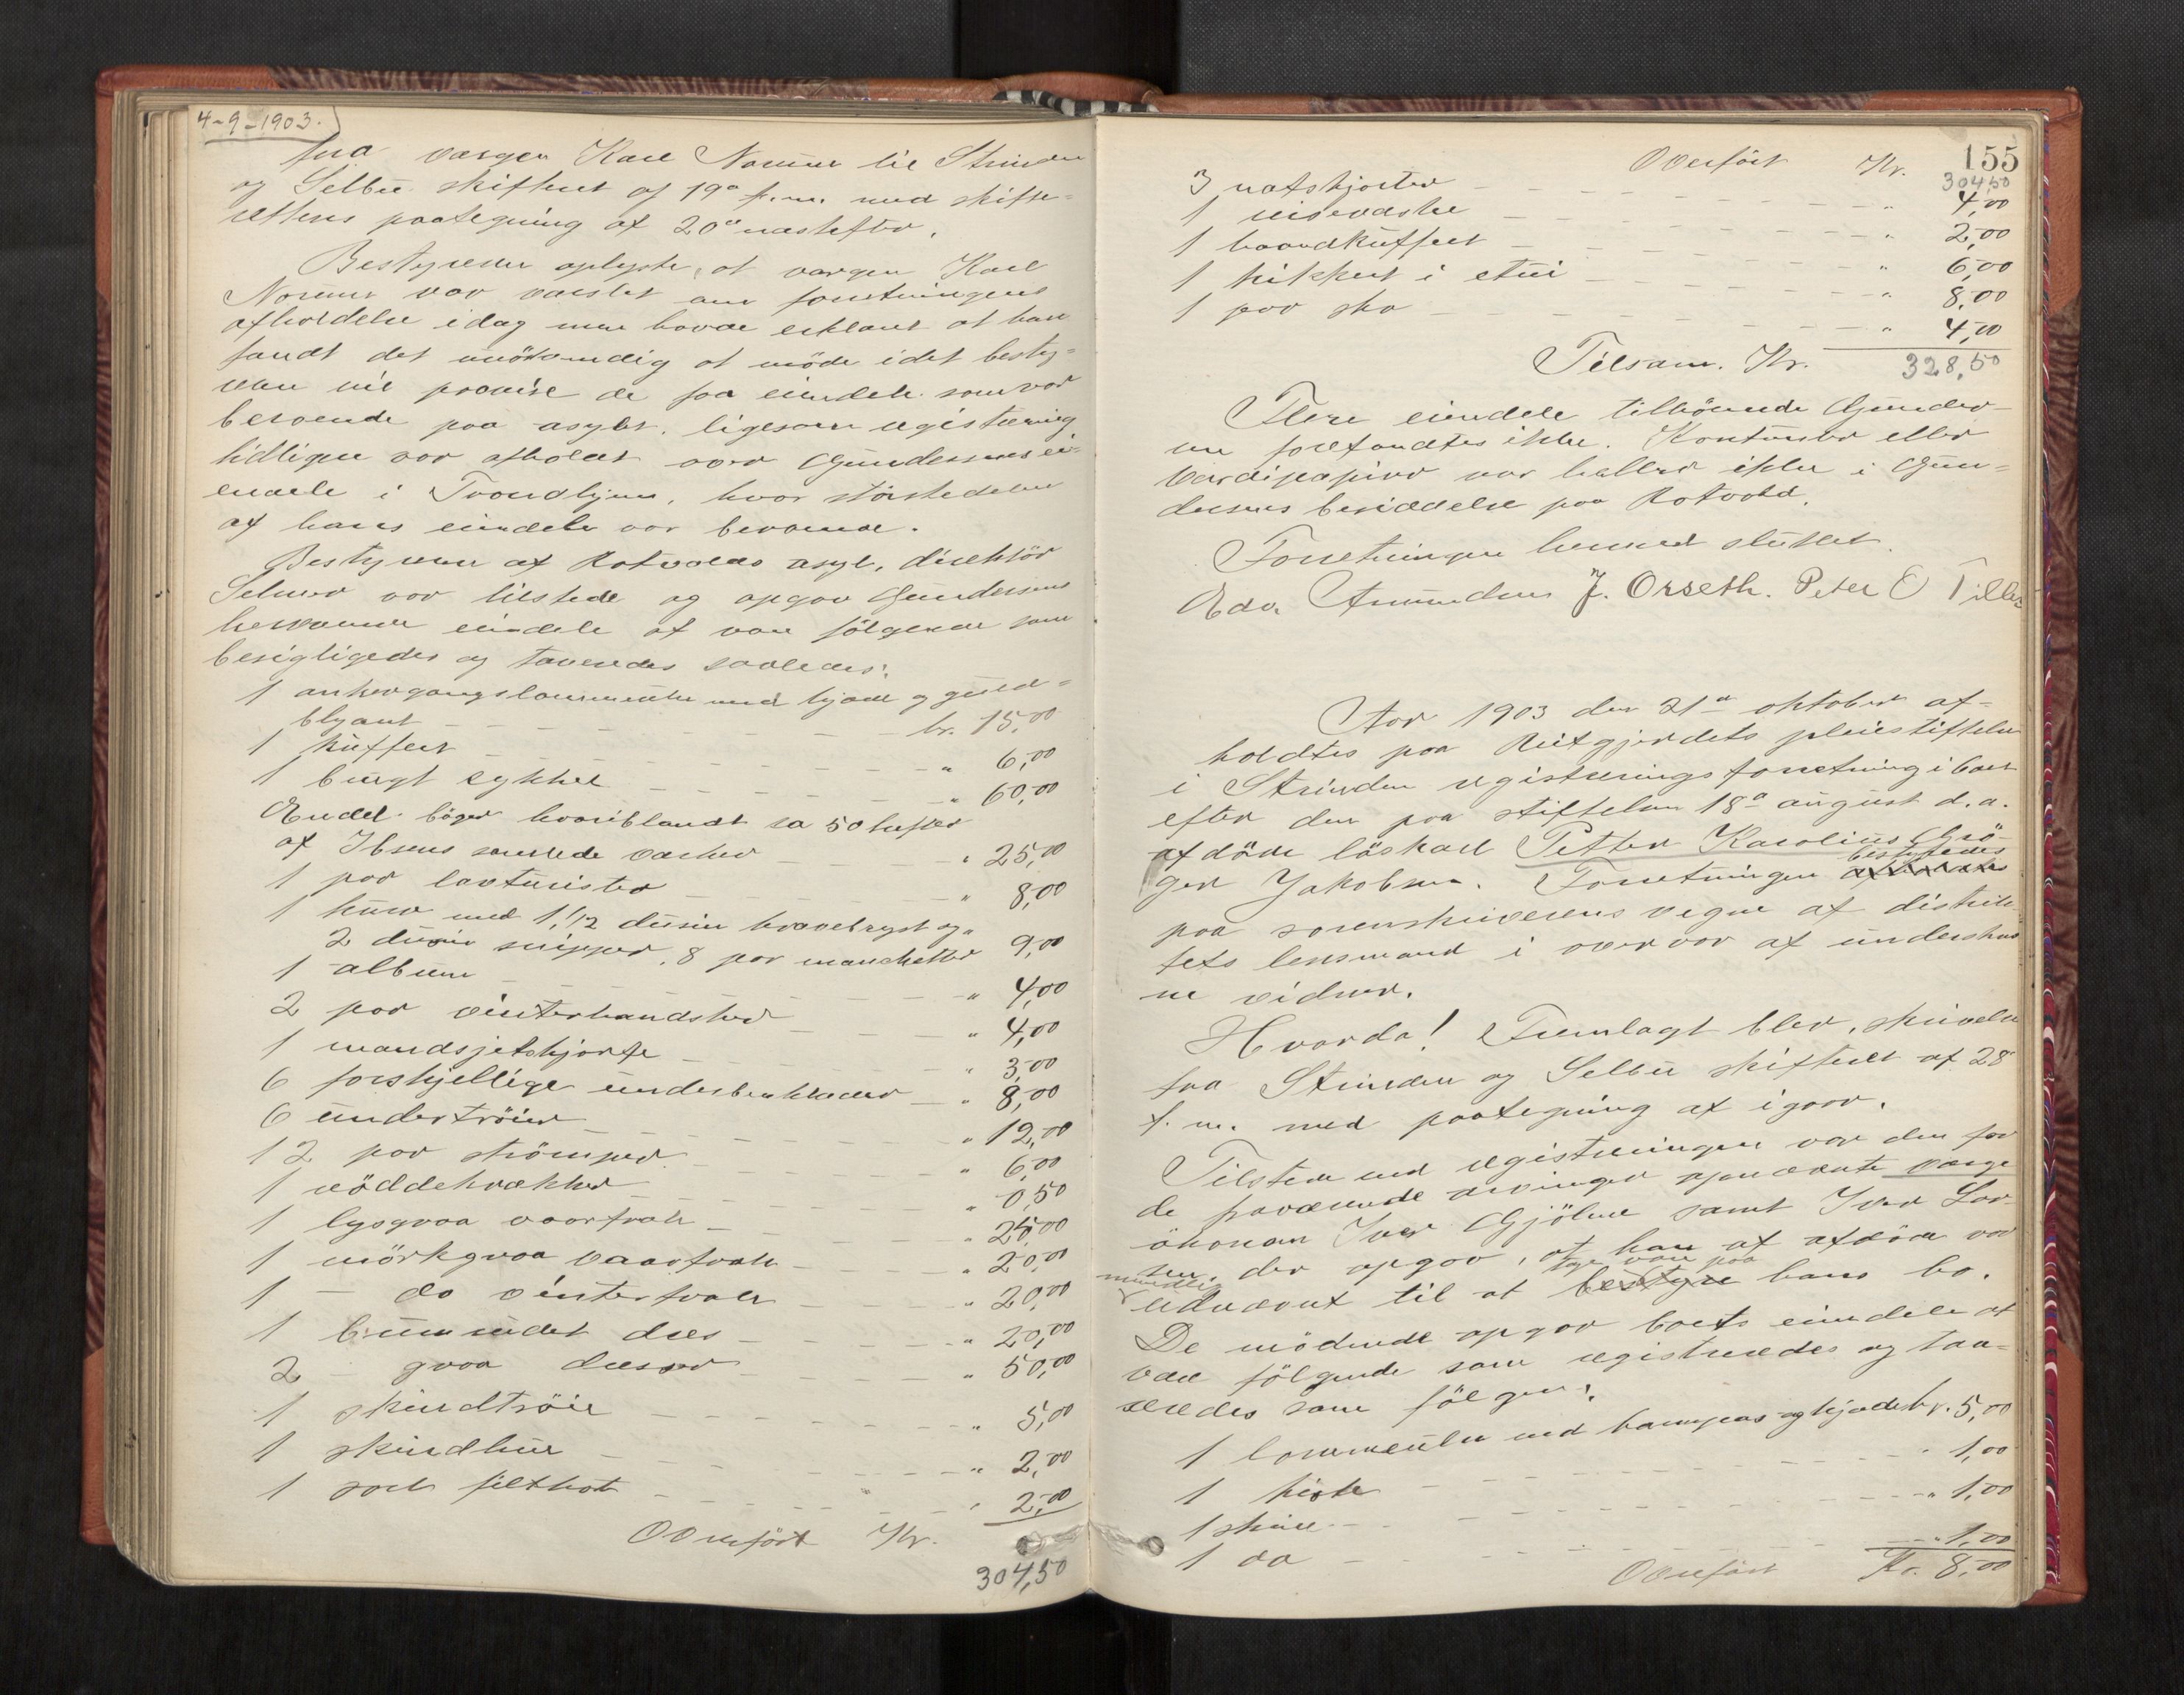 4-9-1903.
fra værgen Karl Normer til Strinden
og Selbu skifteret af 19de f.m. med skifte=
rettens paategning af 20de næstefter.
Bestyreren oplyste, at værgen Karl
Normer var varslet om forretningens
afholdelse idag men havde erklæret at han
fandt det unödvendig at möde idet besty=
reren vil paavise de faa eiendele som var
beroende paa asylet, ligesom registrering
tidligere var afholdt over Gundersens ei=
endele i Trondhjem, hvor störstedelen
af hans eiendele var beroende.
Bestyreren af Rotvolds asyl, direktör
Selmer var tilstede og opgav Gundersens
herværende eiendele at være fölgende som
besigtigedes og taxeredes saaledes:
1 ankergangslommeuhr med kjæde og guld=
blyant kr. 15,00
1 kuffert " 6,00
1 brugt sykkel " 60,00
Endel böger hvoriblandt ca 50 hefter
af Ibsens samlede værker " 25,00
1 par lavturister " 8,00
1 kurv med 1 1/12 dusin kravebryst og
2 dusin snipper, 8 par manchetter 9,00
1 album " 4,00
2 par vinterhandsker " 4,00
1 mandsjetskjorte " 3,00
6 forskjellige underbenklæder " 8,00
6 undertröier " 12,00
12 par strömper " 6,00
1 nöddeknækker " 0,50
1 lysgraa vaarfrak " 25,00
1 mörkgraa vaarfrak " 20,00
1 - do vinterfrak " 20,00
1 brunrudet dres " 20,00
2 - graa dresser " 50,00
1 skindtröie " 5,00
1 skindhue " 2,00
1 sort filthat " 2,00
Overfört Kr.
304,50
155
Overfört Kr. 304,50
3 natskjorter " 4,00
1 reisevæske " 2,00
1 haandkuffert " 6,00
1 kikkert i etui " 8,00
1 par sko " 4,00
Tilsam. Kr. 328,50
Flere eiendele tilhörende Gunder=
sen forefandtes ikke. Kontanter eller
værdipapirer var heller ikke i Gun=
dersens besiddelse paa Rotvold.
Forretningen hermed sluttet.
Edv. Amundsen J. Orseth. Peter O Tiller
Aar 1903 den 21de oktober af=
holdtes paa Reitgjerdets pleiestiftelse
i Strinden registreringsforretning i boet
efter den paa stiftelsen 18de august d.a.
afdöde löskarl Petter Karolius Grö=
ger Jakobsen. Forretningen bestyredes
paa sorenskriverens vegne af distrik=
tets lensmand i overvær af underskrev
ne vidner.
Hvorda! Fremlagt blev, skrivelse
fra Strinden og Selbu skifteret af 28
f.m. med paategning af igaar.
Tilstede ved registreringen var den for
de fraværende arvinger opnævnte værge
ökonom Iver Gjölme samt Iver Lar
sen, der opgav, at han af afdöde var
mundtlig udnævnt til at tage vare paa hans bo.
De mödende opgav boets eiendele at
være fölgende som registreredes og tax=
seredes som fölger:
1 lommeuhr med kompas og kjæde kr. 5,00
1 kiste " 1,00
1 skrin " 1,00
1 do " 1,00
Overfört Kr. 8,00